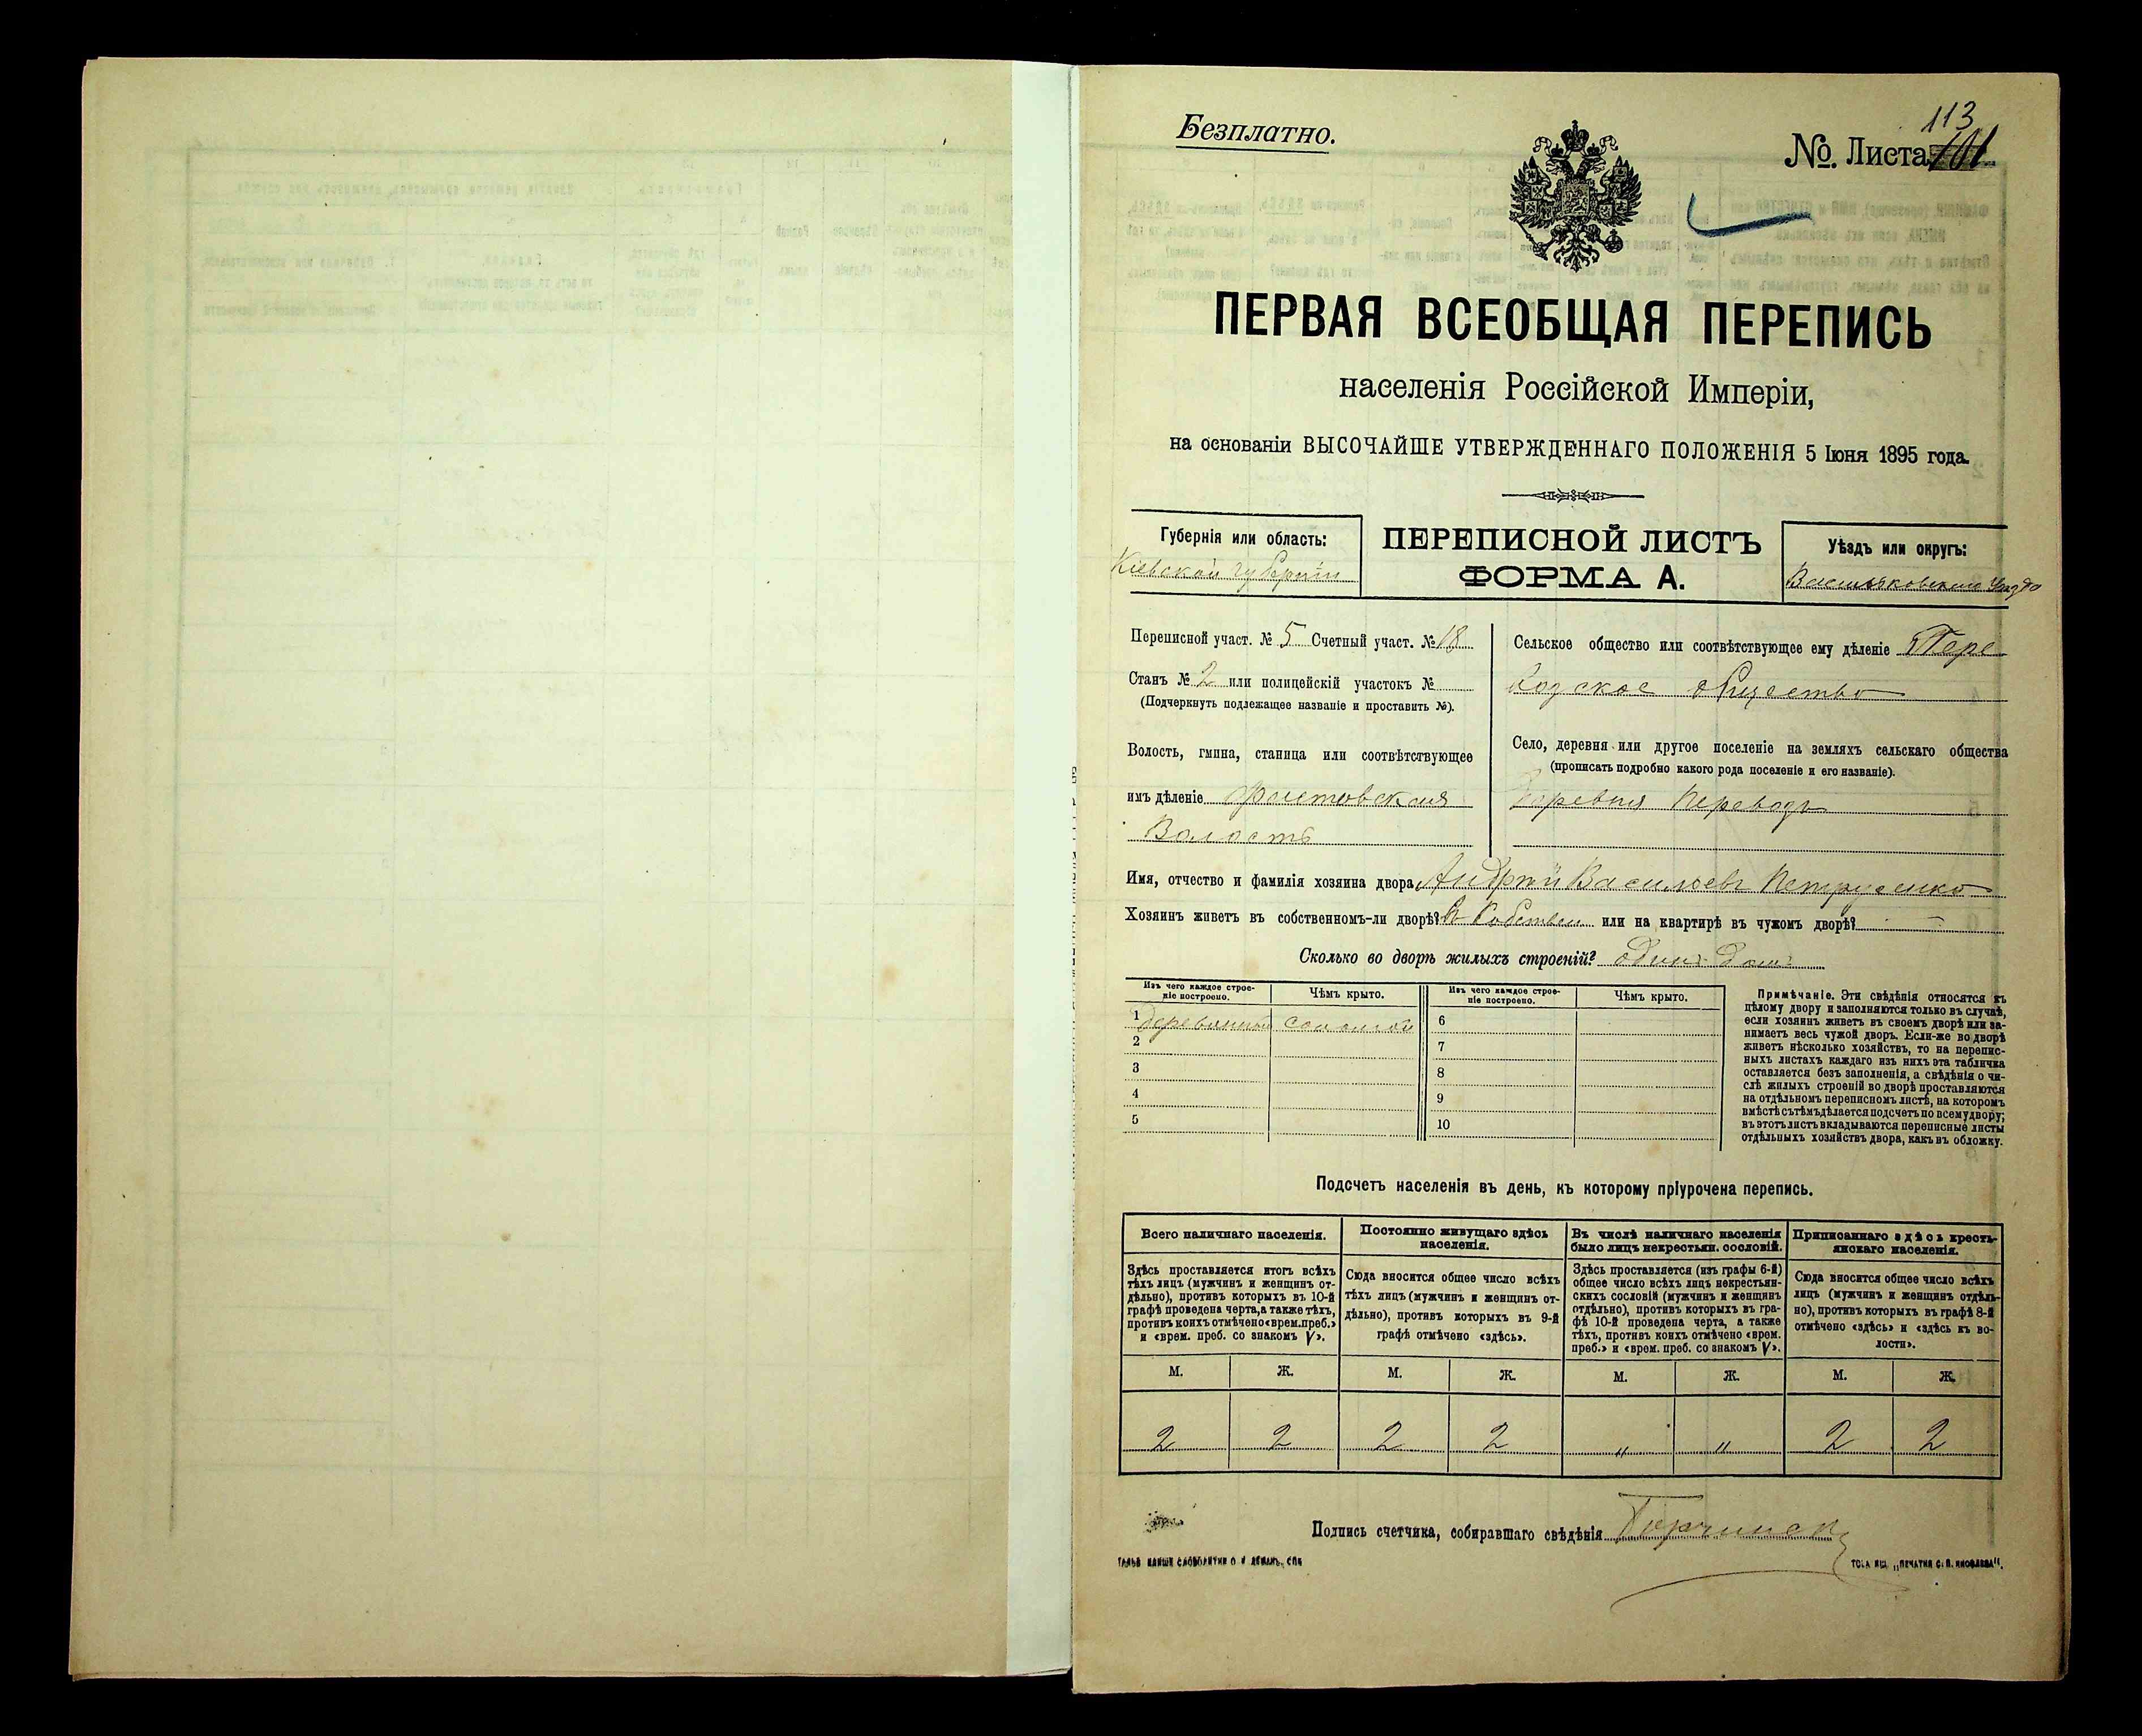 113
Безплатно.
№. Листа 101
ПЕРВАЯ ВСЕОБЩАЯ ПЕРЕПИСЬ
населенія Россійской Имперіи,
на основаніи ВЫСОЧАЙШЕ УТВЕРЖДЕННАГО ПОЛОЖЕНІЯ 5 Іюня 1895 года.
Губернія или область:
Кіевской губерніи
ПЕРЕПИСНОЙ ЛИСТЪ
ФОРМА А.
Уѣздъ или округъ:
Васильковскаго уѣзда
Переписной участ. № 5 Счетный участ. № 18
Станъ № 2 или полицейскій участокъ №
(Подчеркнуть подлежащее названіе и проставить №).
Волость, гмина, станица или соотвѣтствующее
имъ дѣленіе Фастовская
Волость
Сельское общество или соотвѣтствующее ему дѣленіе Пере
водское общество
Село, деревня или другое поселеніе на земляхъ сельскаго общества
(прописать подробно какого рода поселеніе и его названіе).
Деревня Переводъ
Имя, отчество и фамилія хозяина двора Андрѣй Васильевъ Петрусенко
Хозяинъ живетъ въ собственномъ-ли дворѣ? въ собствен или на квартирѣ въ чужомъ дворѣ? —
Сколько во дворѣ жилыхъ строеній? одинъ домъ
Изъ чего каждое строе-
ніе построено.
Чѣмъ крыто.
Изъ чего каждое строе-
ніе построено.
Чѣмъ крыто.
1 деревянный соломой
2
3
4
5
6
7
8
9
10
Примѣчаніе. Эти свѣдѣнія относятся къ
цѣлому двору и заполняются только въ случаѣ,
если хозяинъ живетъ въ своемъ дворѣ или за-
нимаетъ весь чужой дворъ. Если-же во дворѣ
живетъ нѣсколько хозяйствъ, то на перепис-
ныхъ листахъ каждаго изъ нихъ эта табличка
оставляется безъ заполненія, а свѣдѣнія о чи-
слѣ жилыхъ строеній во дворѣ проставляются
на отдѣльномъ переписномъ листѣ, на которомъ
вмѣстѣ съ тѣмъ дѣлается подсчетъ по всему двору;
въ этотъ листъ вкладываются переписные листы
отдѣльныхъ хозяйствъ двора, какъ въ обложку.
Подсчетъ населенія въ день, къ которому пріурочена перепись.
Всего наличнаго населенія.
Здѣсь проставляется итогъ всѣхъ
тѣхъ лицъ (мужчинъ и женщинъ от-
дѣльно), противъ которыхъ въ 10-й
графѣ проведена черта, а также тѣхъ,
противъ коихъ отмѣчено «врем. преб.»
и «врем. преб. со знакомъ V».
Постоянно живущаго здѣсь
населенія.
Сюда вносится общее число всѣхъ
тѣхъ лицъ (мужчинъ и женщинъ от-
дѣльно), противъ которыхъ въ 9-й
графѣ отмѣчено «здѣсь».
Въ числѣ наличнаго населенія
было лицъ некрестьян. сословій.
Здѣсь проставляется (изъ графы 6-й)
общее число всѣхъ лицъ некрестьян-
скихъ сословій (мужчинъ и женщинъ
отдѣльно), противъ которыхъ въ гра-
фѣ 10-й проведена черта, а также
тѣхъ, противъ коихъ отмѣчено «врем.
преб.» и «врем. преб. со знакомъ V».
Приписаннаго здѣсь кресть-
янскаго населенія.
Сюда вносится общее число всѣхъ
лицъ (мужчинъ и женщинъ отдѣль-
но), противъ которыхъ въ графѣ 8-й
отмѣчено «здѣсь» и «здѣсь къ во-
лости».
М. Ж. М. Ж. М. Ж. М. Ж.
2 2 2 2 " " 2 2
Подпись счетчика, собиравшаго свѣдѣнія